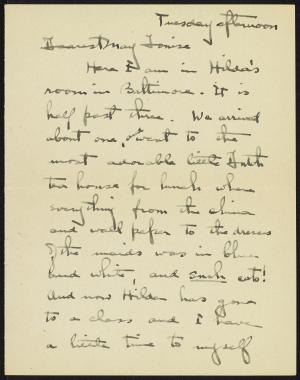 Tuesday afternoon
Dearest May Louise
Here I am in Hilda's
room in Baltimore. It is
half past three. We arrived
about one, & went to the
most adorable little Dutch
tea house for lunch where
everything from the china
and wall paper to the dresses
of the maids was in blue
and white, and such eats!
And now Hilda has gone
to a class and I have
a little time to myself